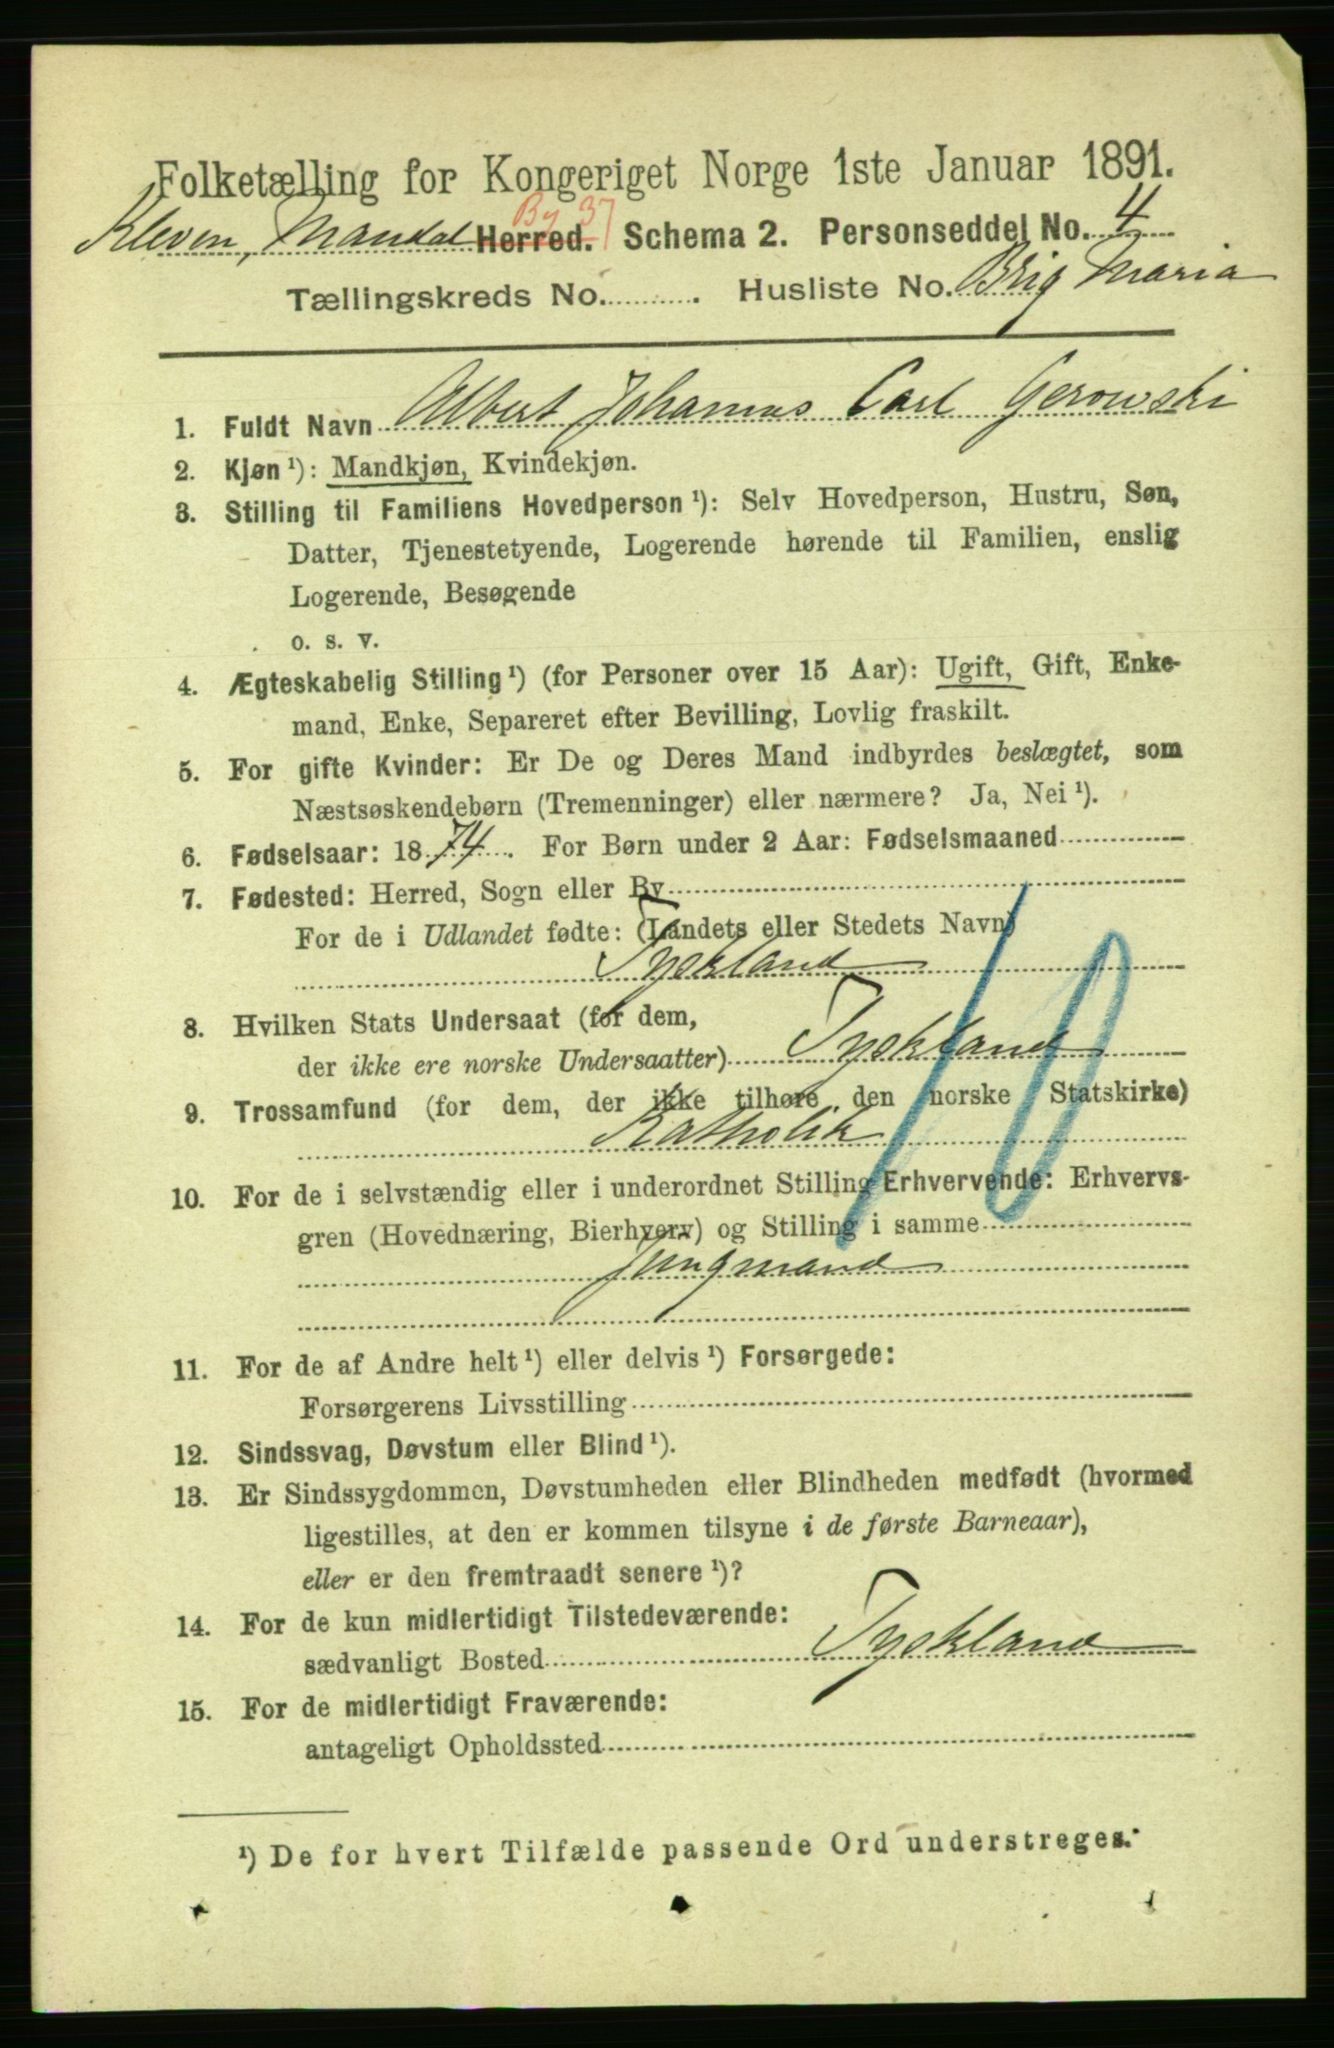 Folketælling for Kongeriget Norge 1ste Januar 1891.
By 37
Kleven, Mandal Herred. Schema 2. Personseddel No. 4
Tællingskreds No. Husliste No. Brig Maria
1. Fuldt Navn Albert Johannes Carl Gerowski
2. Kjøn ¹): Mandkjøn, Kvindekjøn.
3. Stilling til Familiens Hovedperson ¹): Selv Hovedperson, Hustru, Søn,
Datter, Tjenestetyende, Logerende hørende til Familien, enslig
Logerende, Besøgende
o. s. v.
4. Ægteskabelig Stilling ¹) (for Personer over 15 Aar): Ugift, Gift, Enke-
mand, Enke, Separeret efter Bevilling, Lovlig fraskilt.
5. For gifte Kvinder: Er De og Deres Mand indbyrdes beslægtet, som
Næstsøskendebørn (Tremenninger) eller nærmere? Ja, Nei ¹).
6. Fødselsaar: 1874. For Børn under 2 Aar: Fødselsmaaned
7. Fødested: Herred, Sogn eller By
For de i Udlandet fødte: (Landets eller Stedets Navn)
Tyskland
8. Hvilken Stats Undersaat (for dem,
der ikke ere norske Undersaatter) Tyskland
9. Trossamfund (for dem, der ikke tilhøre den norske Statskirke)
Katholik
10. For de i selvstændig eller i underordnet Stilling Erhvervende: Erhvervs-
gren (Hovednæring, Bierhverv) og Stilling i samme
Jungmand
10
11. For de af Andre helt ¹) eller delvis ¹) Forsørgede:
Forsørgerens Livsstilling
12. Sindssvag, Døvstum eller Blind ¹).
13. Er Sindssygdommen, Døvstumheden eller Blindheden medfødt (hvormed
ligestilles, at den er kommen tilsyne i de første Barneaar),
eller er den fremtraadt senere ¹)?
14. For de kun midlertidigt Tilstedeværende:
sædvanligt Bosted Tyskland
15. For de midlertidigt Fraværende:
antageligt Opholdssted
¹) De for hvert Tilfælde passende Ord understreges.